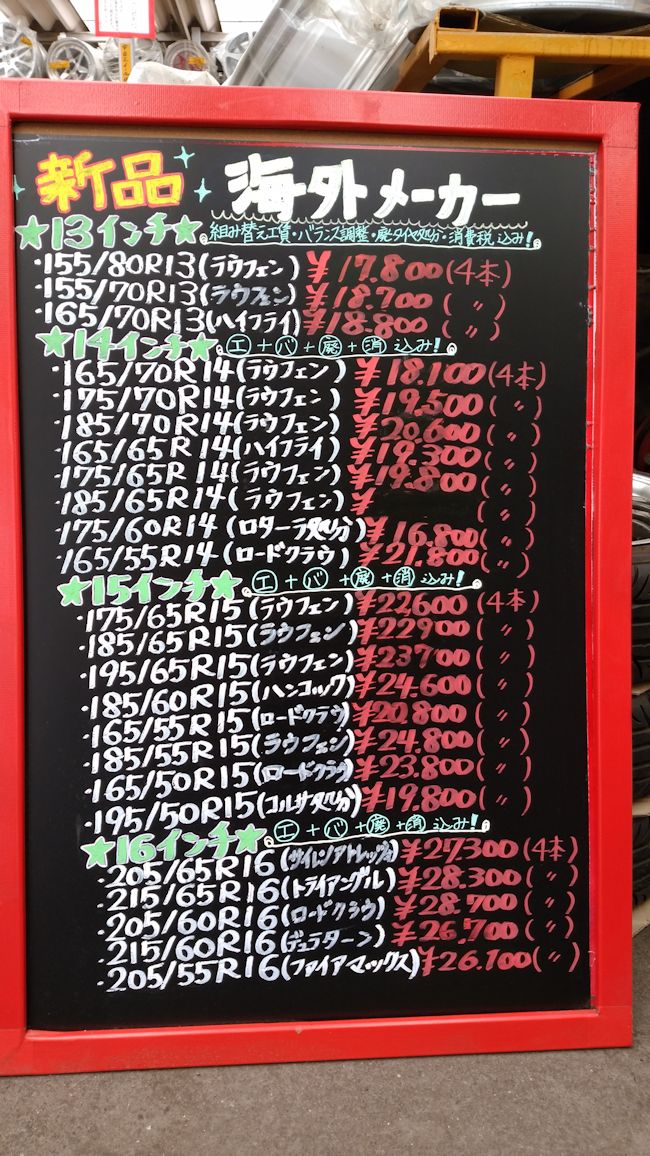 新品 海外メーカー
★13インチ★ 組み替え工賃・バランス調整・廃タイヤ処分・消費税込み!
・155/80R13(ラウフェン) ¥17.800(4本)
・155/70R13(ラウフェン) ¥18.700(〃)
・165/70R13(ハイフライ) ¥18.800(〃)
★14インチ★ 工+バ+廃+消込み!
・165/70R14(ラウフェン) ¥18.100(4本)
・175/70R14(ラウフェン) ¥19.500(〃)
・185/70R14(ラウフェン) ¥20.600(〃)
・165/65R14(ハイフライ) ¥19.300(〃)
・175/65R14(ラウフェン) ¥19.800(〃)
・185/65R14(ラウフェン) ¥ (〃)
・175/60R14(ロターラ処分) ¥16.800(〃)
・165/55R14(ロードクラウ) ¥21.800(〃)
★15インチ★ 工+バ+廃+消込み!
・175/65R15(ラウフェン) ¥22.600(4本)
・185/65R15(ラウフェン) ¥22900(〃)
・195/65R15(ラウフェン) ¥23700(〃)
・185/60R15(ハンコック) ¥24.600(〃)
・165/55R15(ロードクラウ) ¥20.800(〃)
・185/55R15(ラウフェン) ¥24.800(〃)
・165/50R15(ロードクラウ) ¥23.800(〃)
・195/50R15(コルサ処分) ¥19.800(〃)
★16インチ★ 工+バ+廃+消込み!
・205/65R16 ¥27.300(4本)
・215/65R16(トライアングル) ¥28.300(〃)
・205/60R16(ロードクラウ) ¥28.700(〃)
・215/60R16(デュラターン) ¥26.700(〃)
・205/55R16(ファイアマックス) ¥26.100(〃)